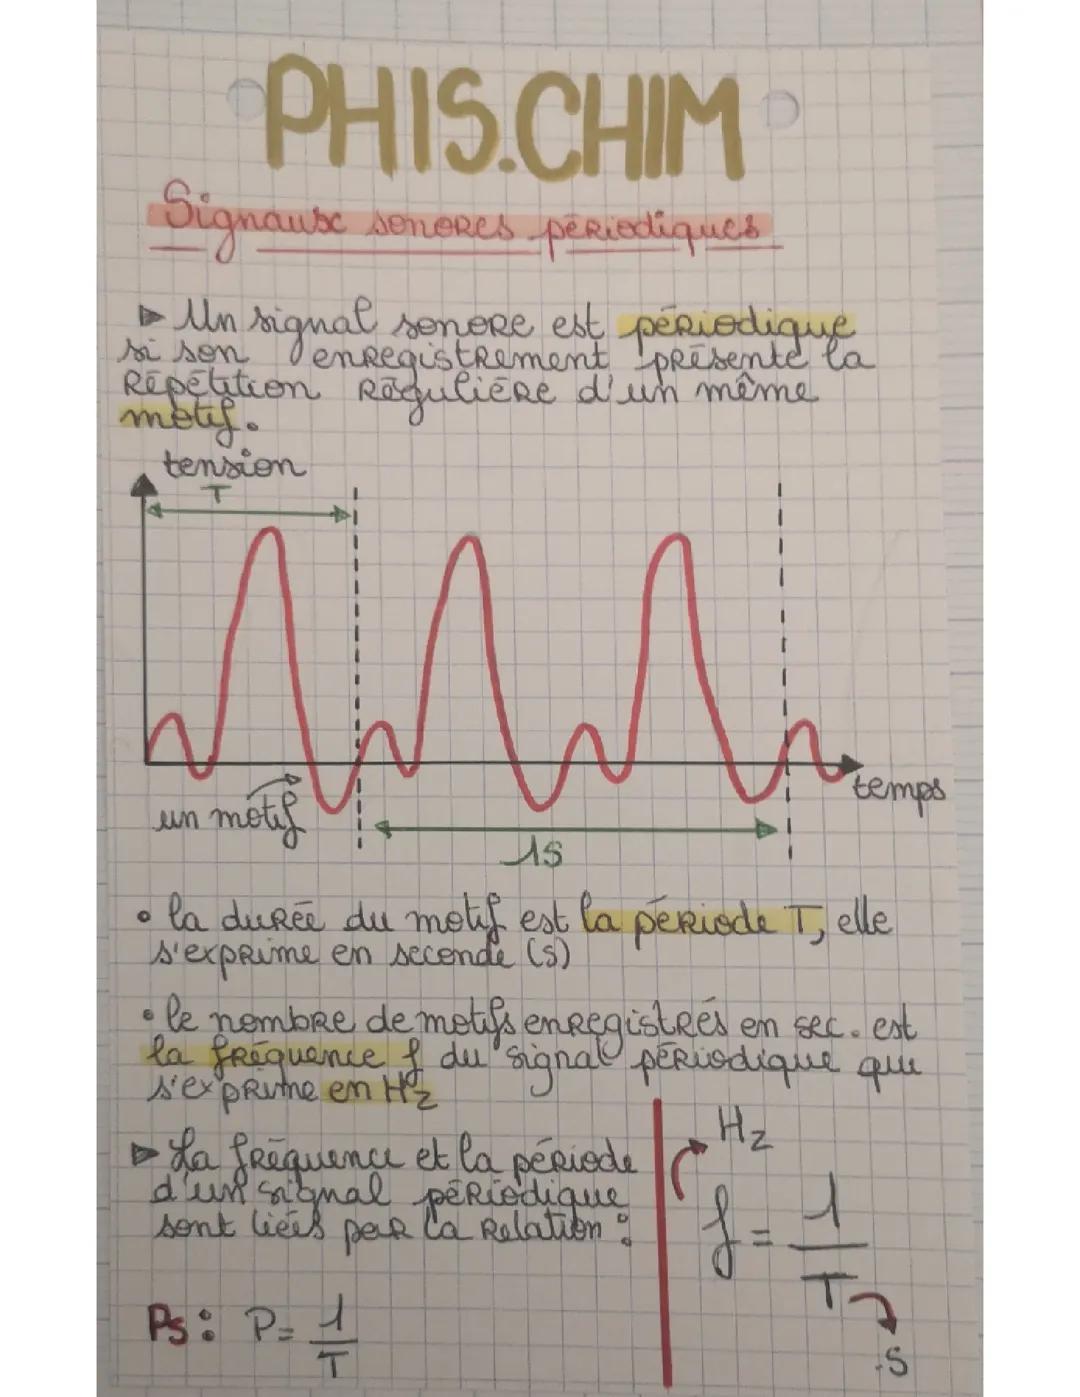 PHIS.CHIM
Signaux sonores périodiques
▶ Un signal sonore est périodique
si son enregistrement présente la
Répétition Régulière d'un même
motif.
tension
T
un motif
temps
1s
• la durée du motif est la période T, elle
s'exprime en seconde (s)
• le nombre de motifs enregistrés en sec. est
la fréquence f du signal périodique qui
s'exprime en Hz
▶ La fréquence et la période
d'un signal périodique
sont liées par la Relation :
Hz
f = 1/T
s
Ps : P = 1/T